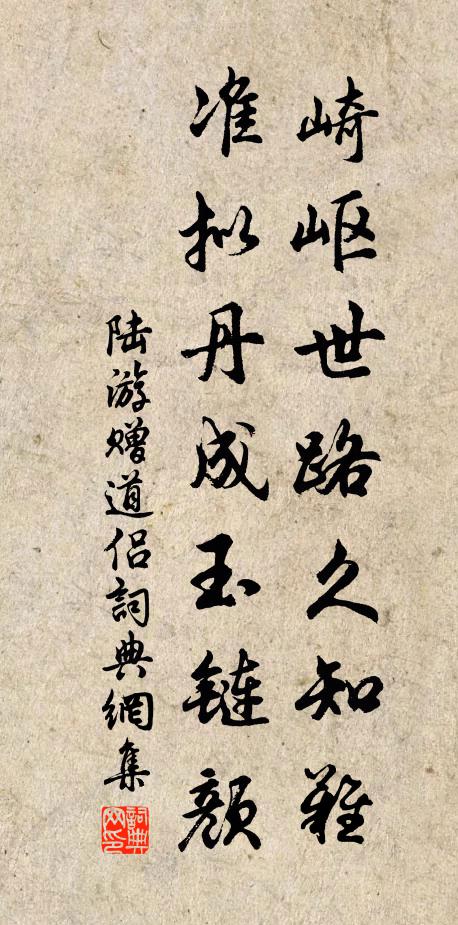 崎岖世路久知難
准拟丹成玉鏈顏
陆游赠道侣詞典網集
詞典网印